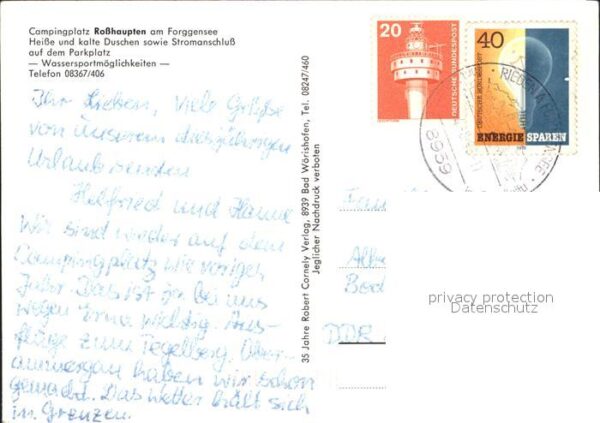 Campingplatz Roßhaupten am Forggensee
Heiße und kalte Duschen sowie Stromanschluß
auf dem Parkplatz
— Wassersportmöglichkeiten —
Telefon 08367/406
Ihr Lieben, Viele Grüße
von unserem diesjährigen
Urlaub senden
Helfried und Hanne
Wir sind wieder auf dem
Campingplatz wie voriges
Jahr. Das ist ja bei uns
wegen Erna wichtig. Aus-
flüge zum Tegelberg, Ober-
ammergau haben wir schon
gemacht. Das Wetter hält sich
in Grenzen.
35 Jahre Robert Cornely Verlag, 8939 Bad Wörishofen, Tel. 08247/460
Jeglicher Nachdruck verboten
20
DEUTSCHE BUNDESPOST
40
deutsche bundespost
ENERGIE SPAREN
8959
DDR
privacy protection
Datenschutz